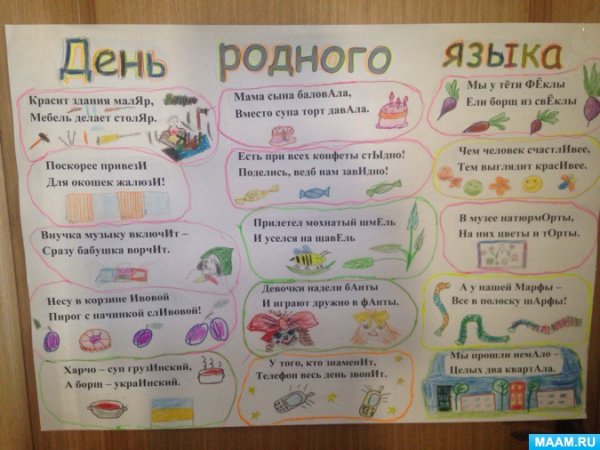 День родного языка
Красит здания малЯр,
Мебель делает столЯр.
Поскорее привезИ
Для окошек жалюзИ!
Внучка музыку включИт –
Сразу бабушка ворчИт.
Несу в корзине Ивовой
Пирог с начинкой слИвовой!
Харчо – суп грузИнский,
А борщ – украИнский.
Мама сына баловАла,
Вместо супа торт давАла.
Есть при всех конфеты стЫдно!
Поделись, ведб нам завИдно!
Прилетел мохнатый шмЕль
И уселся на щавЕль
Девочки надели бАнты
И играют дружно в фАнты.
У того, кто знаменИт,
Телефон весь день звонИт.
Мы у тёти ФЁклы
Ели борщ из свЁклы
Чем человек счастлИвее,
Тем выглядит красИвее.
В музее натюрмОрты,
На них цветы и тОрты.
А у нашей Марфы –
Все в полоску шАрфы!
Мы прошли немАло –
Целых два квартАла.
MAAM.RU